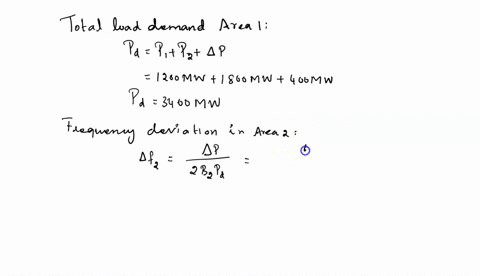 Total load demand Area 1:
Pd = P1 + P2 + ΔP
= 1200 MW + 1800 MW + 400 MW
Pd = 3400 MW
Frequency deviation in Area 2:
Δf2 = ΔP / 2 B2 Pd =